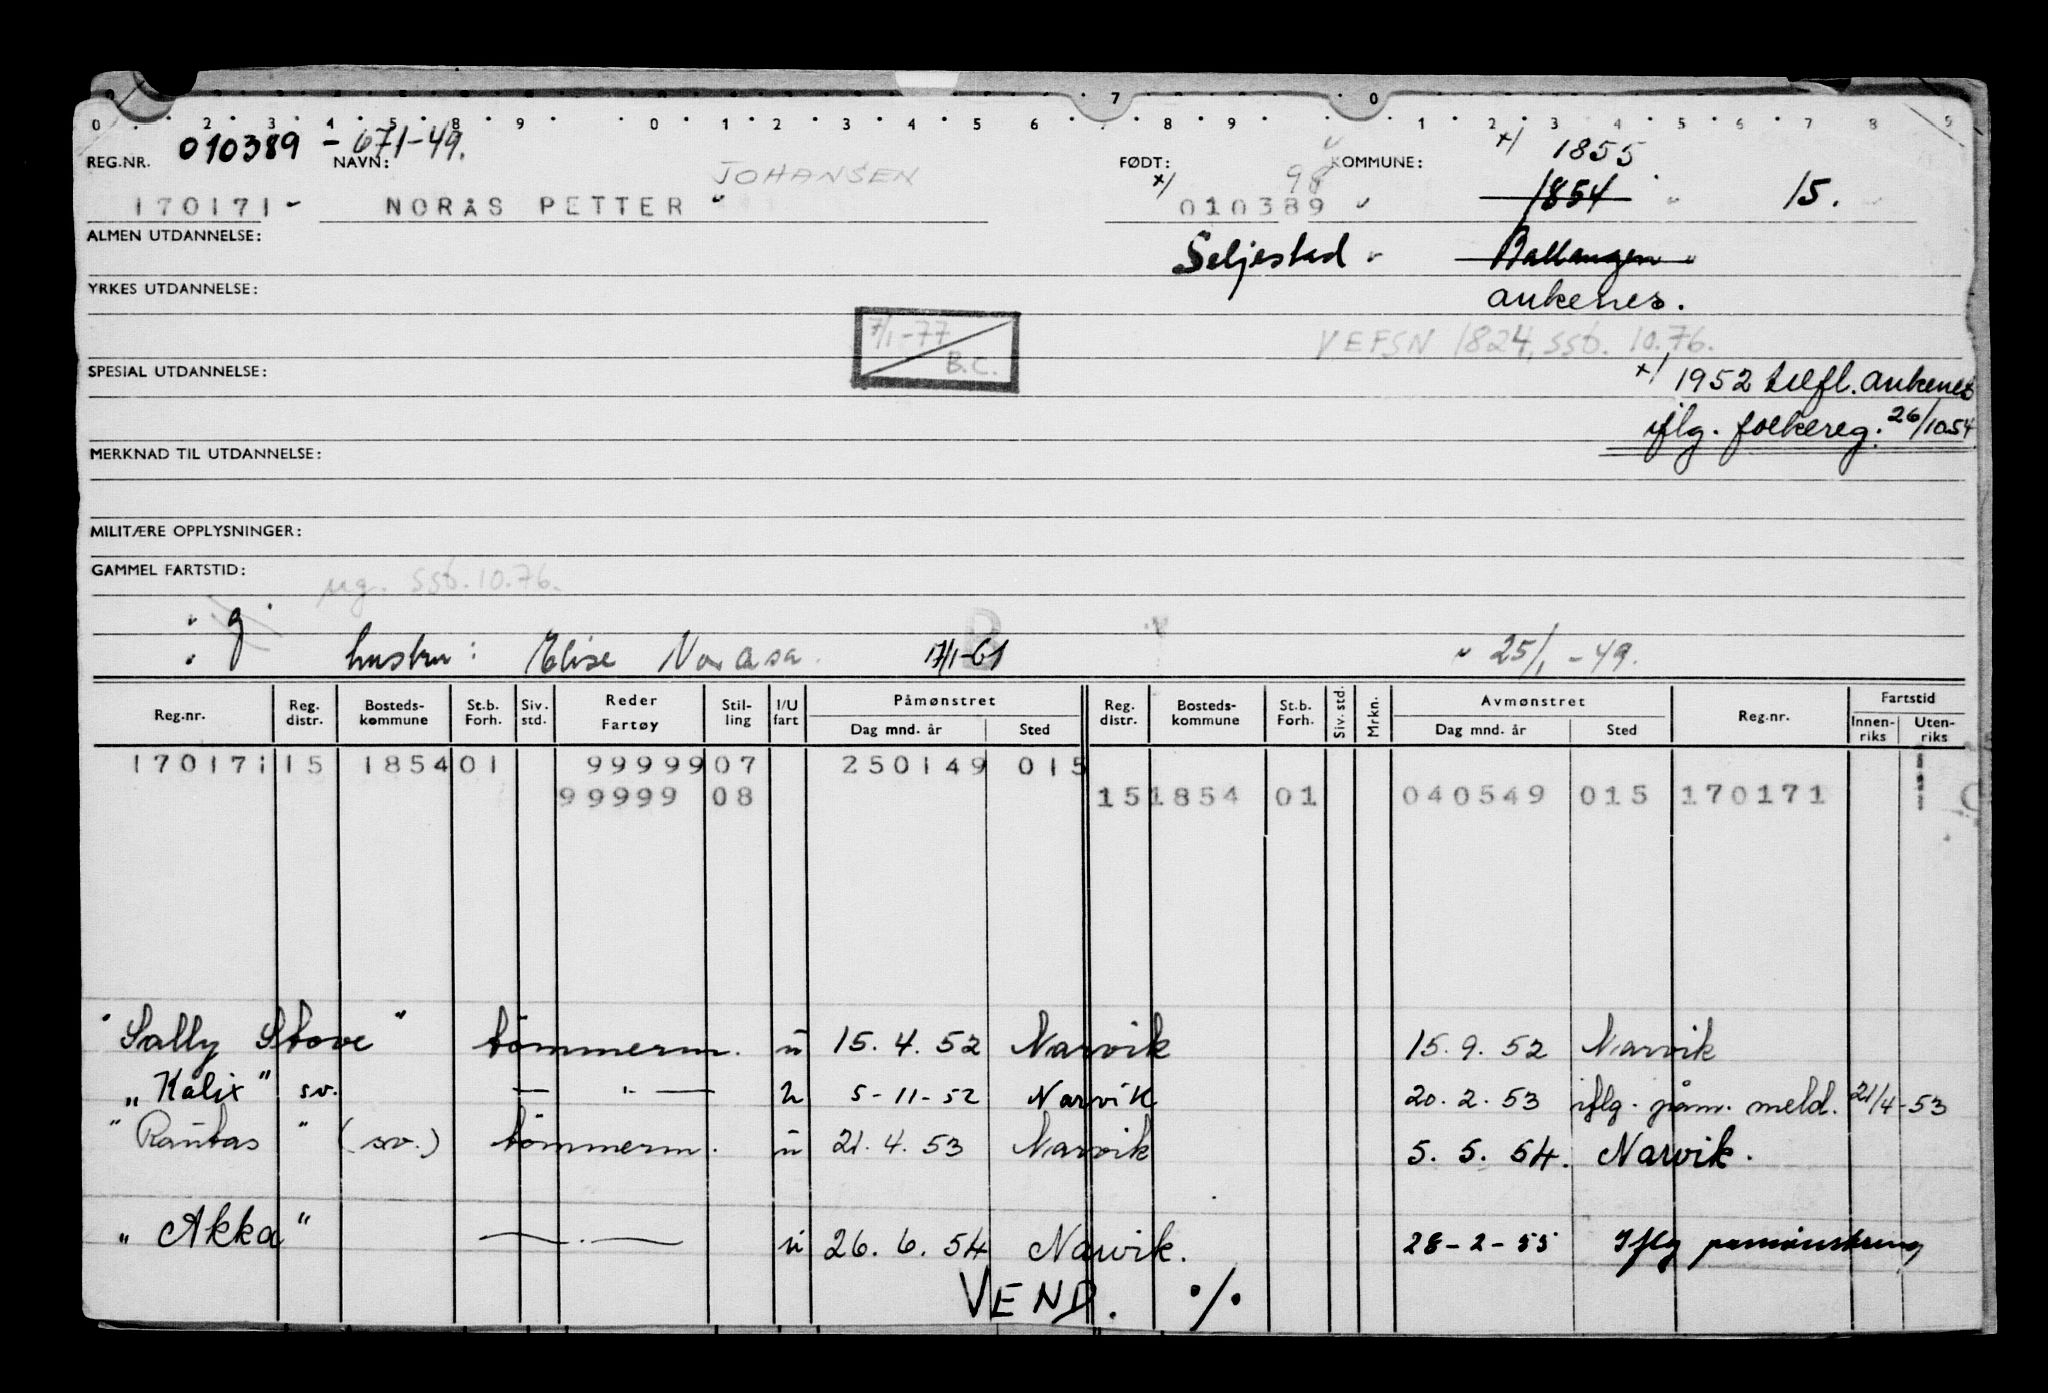 0 2 3 4 5 8 9 0 1 2 3 4 5 6 7 8 9 0 1 2 3 4 5 6 7 8 9
REG.NR. 010389 - 671-49. NAVN: JOHANSEN FØDT: 98 KOMMUNE: x/ 1855
170171- NORÅS PETTER x/ 010389 1854 15.
ALMEN UTDANNELSE: Seljestad Ballangen
YRKES UTDANNELSE: ankenes.
7/1-77 VEFSN 1824, ssb. 10.76.
B.C.
SPESIAL UTDANNELSE: x/ 1952 tilfl. ankenes
iflg. folkereg. 26/10 54
MERKNAD TIL UTDANNELSE:
MILITÆRE OPPLYSNINGER:
GAMMEL FARTSTID: ug. ssb. 10.76.
g
hustru: Elise 17/1-61 25/1-49.
Reg.nr. Reg. distr. Bosteds-kommune St.b. Forh. Siv. std. Reder Fartøy Stil-ling I/U fart Påmønstret Dag mnd. år Sted Reg. distr. Bosteds-kommune St.b. Forh. Siv. std. Mrkn. Avmønstret Dag mnd. år Sted Reg.nr. Fartstid Innen-riks Uten-riks
170171 15 1854 01 99999 07 250149 015
99999 08 15 1854 01 040549 015 170171
"Sally Stove" tömmerm. u 15. 4. 52 Narvik 15. 9. 52 Narvik
"Kalix" sv. — " — u 5-11-52 Narvik 20. 2. 53 iflg. påm. meld. 21/4-53
"Rautas" (sv.) tömmerm. u 21. 4. 53 Narvik 5. 5. 54. Narvik.
"Akka" — . — u 26. 6. 54 Narvik. 28-2-55 Iflg pamønstring
VEND. ./.